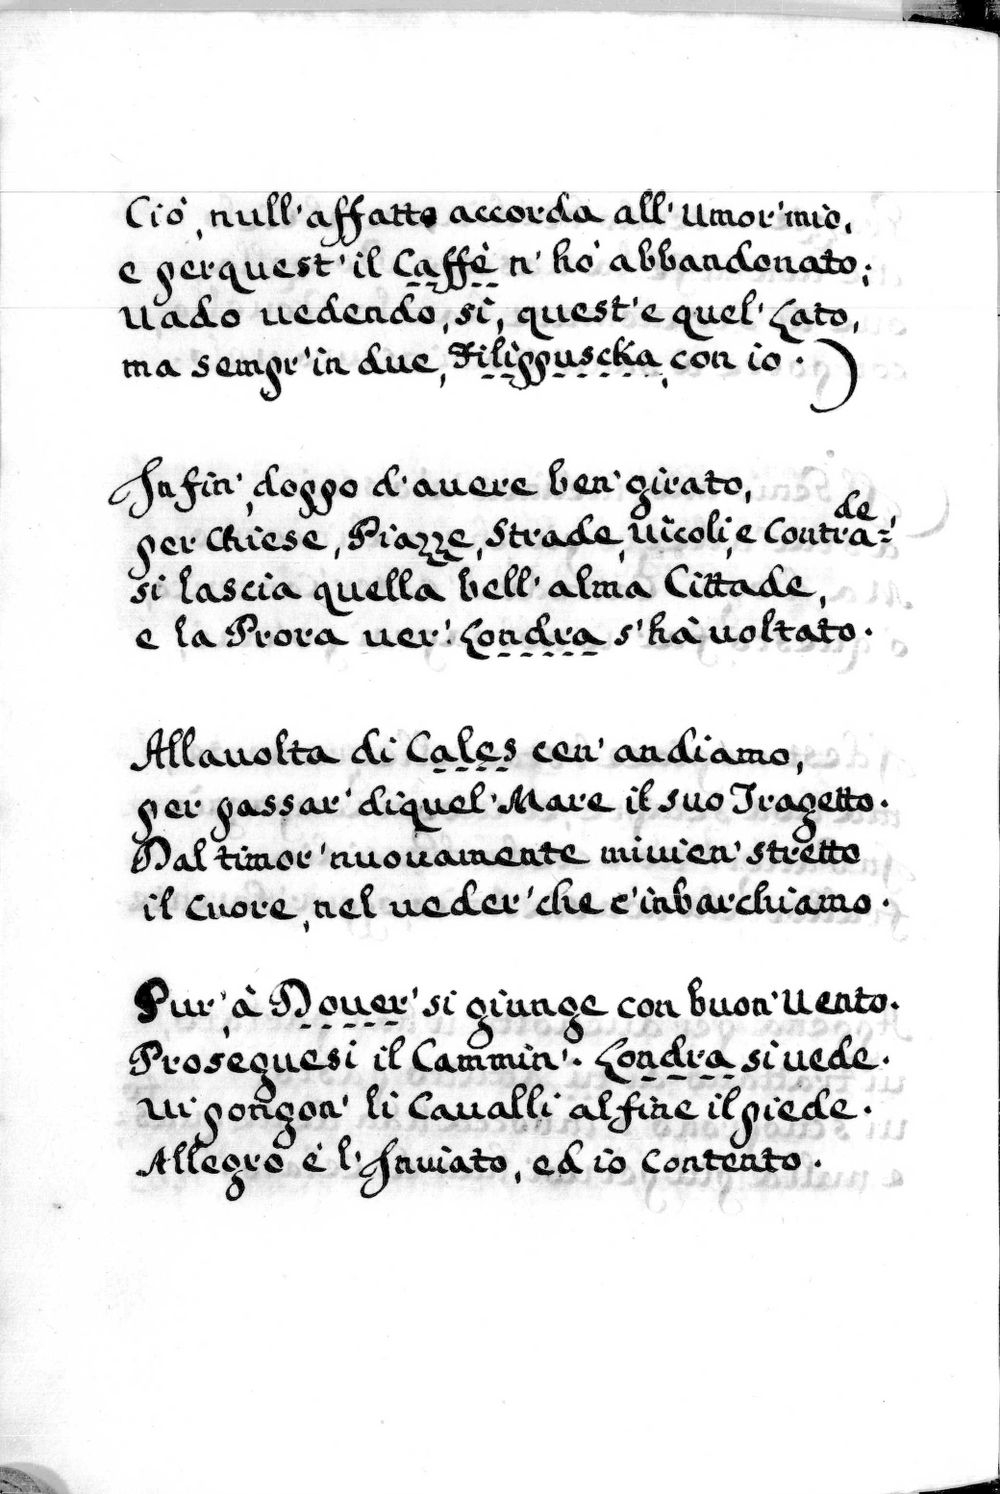 Ciò, null' affatto accorda all' Umor' mio,
e perquest' il Caffè n' hò abbandonato;
Uado uedendo, sì, quest' e quel' Lato,
ma sempr' in due, Filippuscka, con io.)
Infin', doppo d' auere ben' girato,
per Chiese, Piazze, Strade, Uicoli, e Contra=de,
si lascia quella bell' alma Cittade,
e la Prora uer' Londra s' hà uoltato.
Allauolta di Cales cen' andiamo,
per passar' diquel' Mare il suo Tragetto.
Dal timor' nuouamente miuien' stretto
il Cuore, nel ueder' che c' inbarchiamo.
Pur', à Douer' si giunge con buon' Uento.
Proseguesi il Cammin'. Londra siuede.
Ui pongon' li Caualli alfine ilpiede.
Allegro è l' Inuiato, ed io Contento.